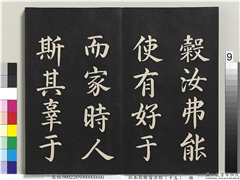 穀汝弗能
使有好于
而家時人
斯其辜于
9